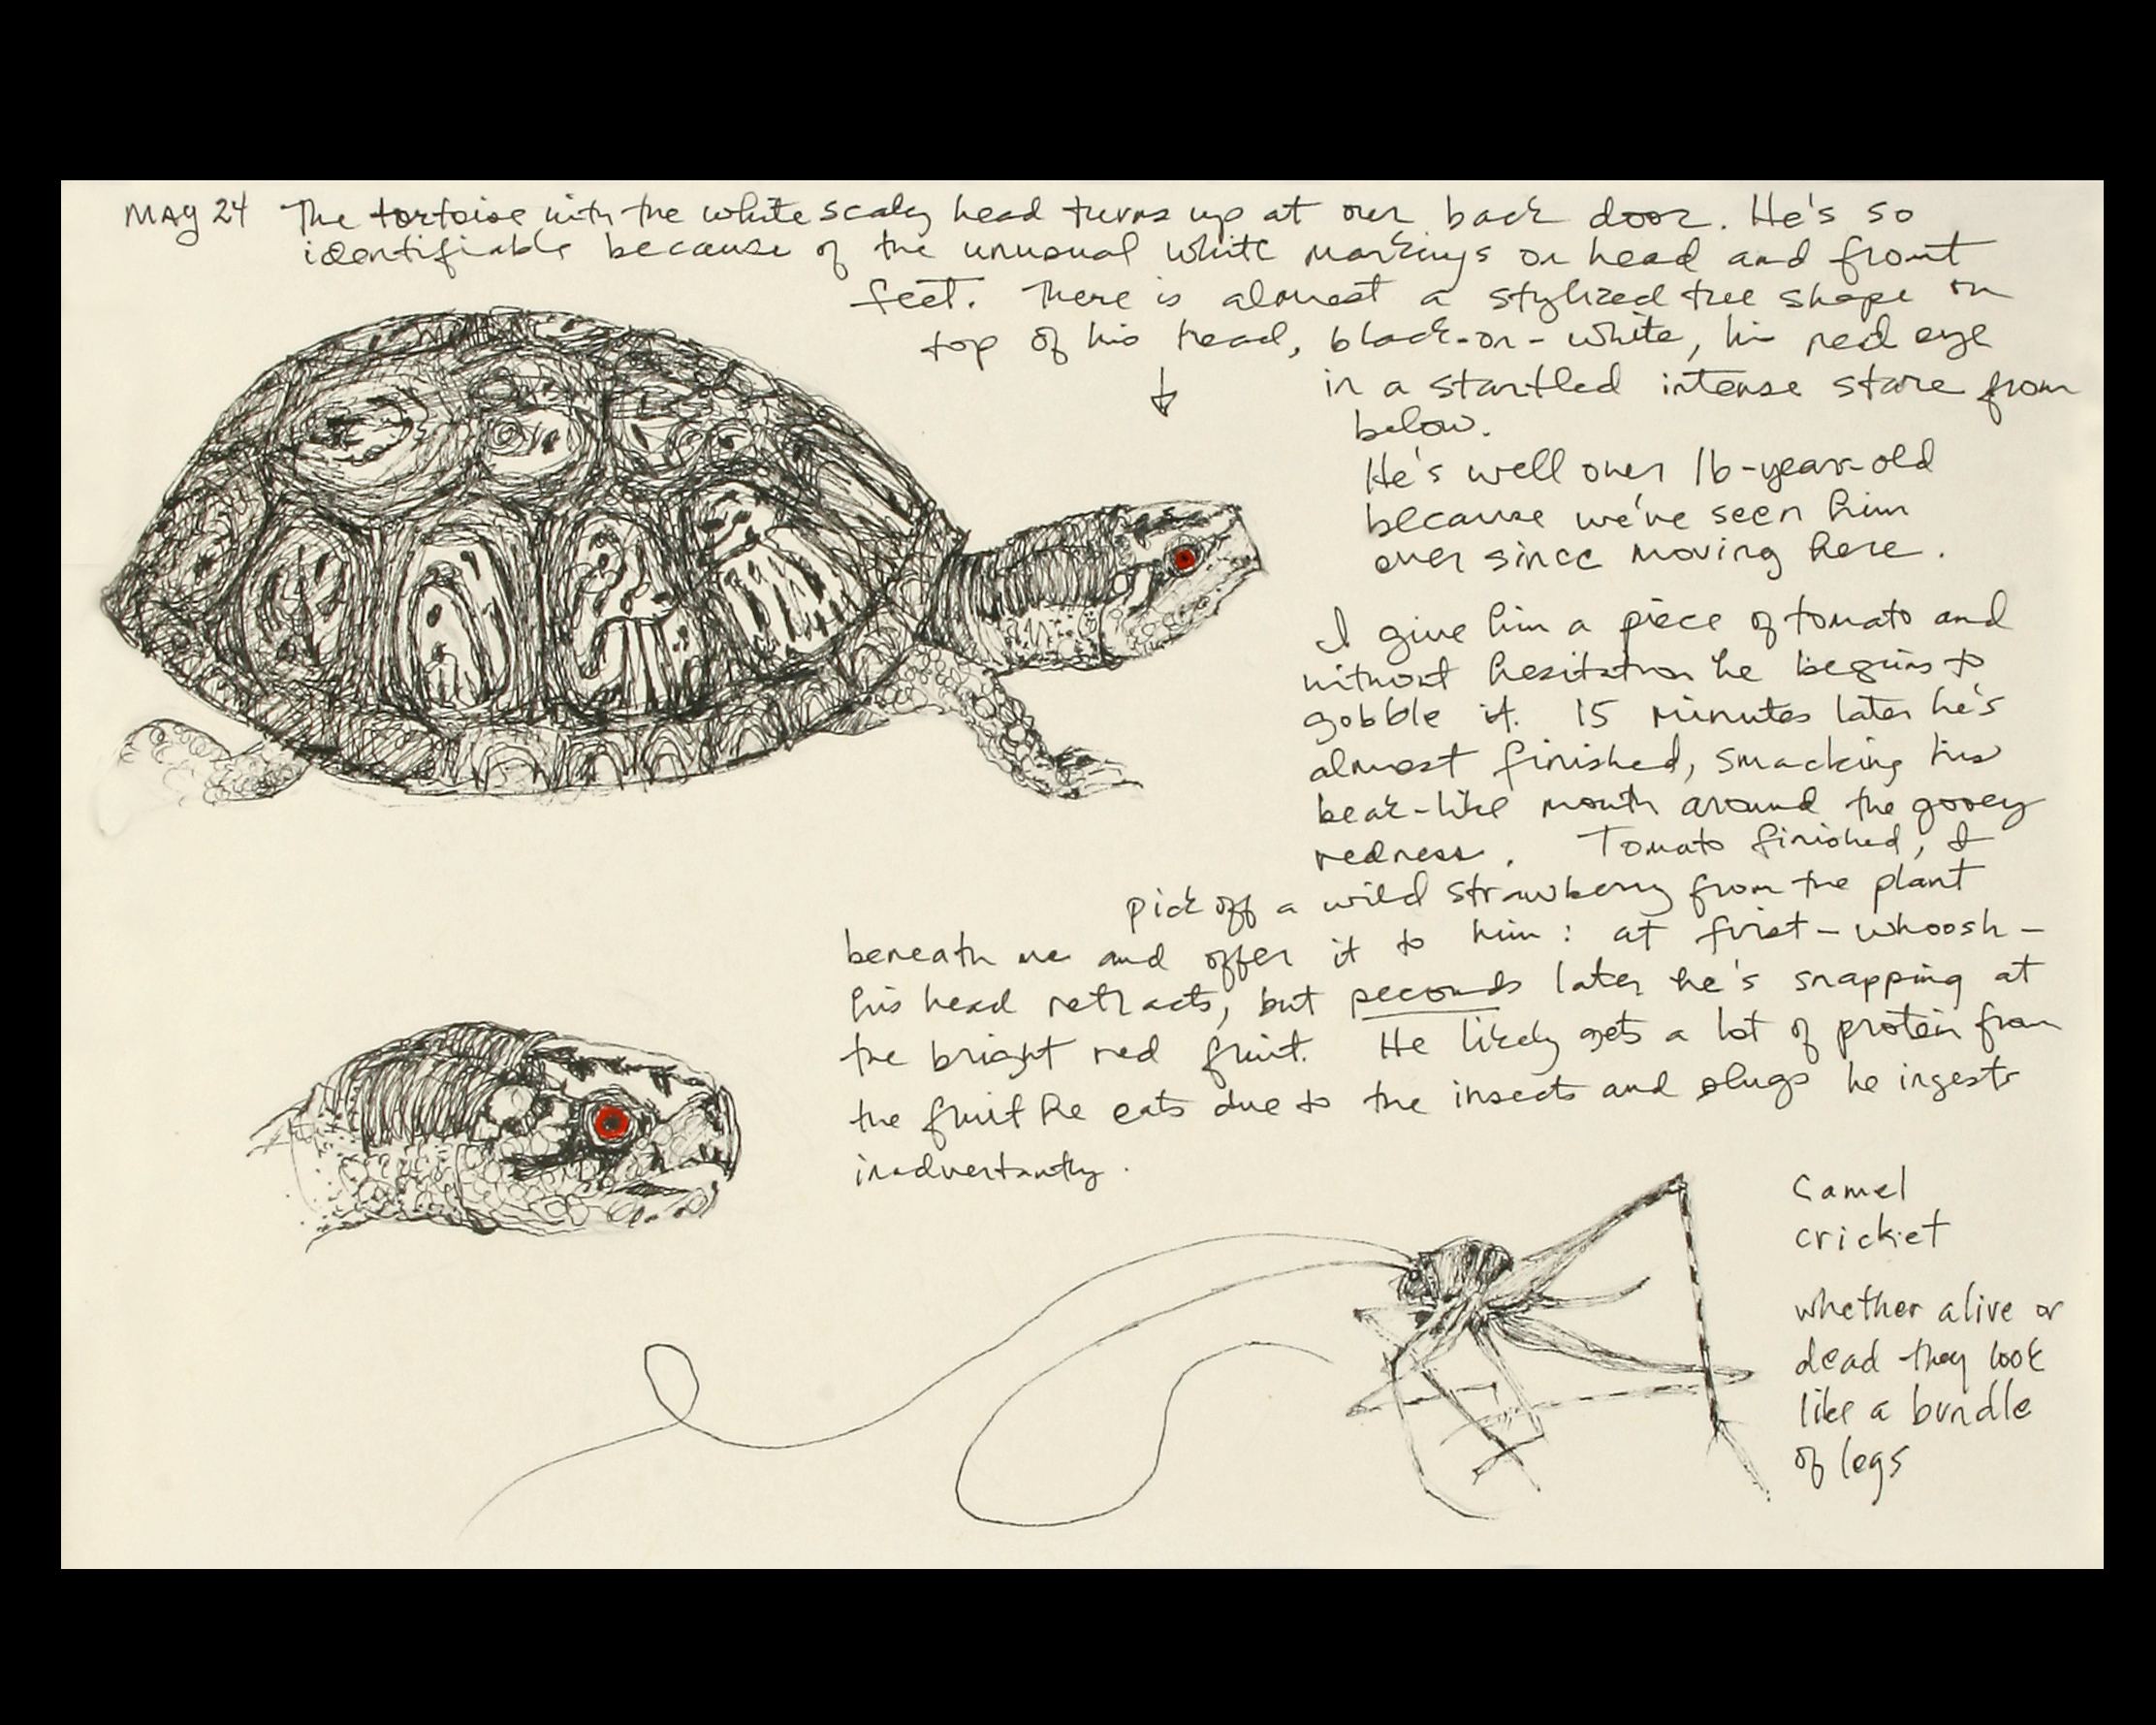 MAY 24 The tortoise with the white scaley head turns up at our back door. He's so
identifiable because of the unusual white markings on head and front
feet. There is almost a stylized tree shape on
top of his head, black-on-white, his red eye
in a startled intense stare from
below.
He's well over 16-year-old
because we've seen him
ever since moving here.
I give him a piece of tomato and
without hesitation he begins to
gobble it. 15 minutes later he's
almost finished, smacking his
beak-like mouth around the gooey
redness. Tomato finished, I
pick off a wild strawberry from the plant
beneath me and offer it to him: at first - whoosh -
his head retracts, but seconds later he's snapping at
the bright red fruit. He likely gets a lot of protein from
the fruit he eats due to the insects and slugs he ingests
inadvertantly.
Camel
cricket
whether alive or
dead they look
like a bundle
of legs